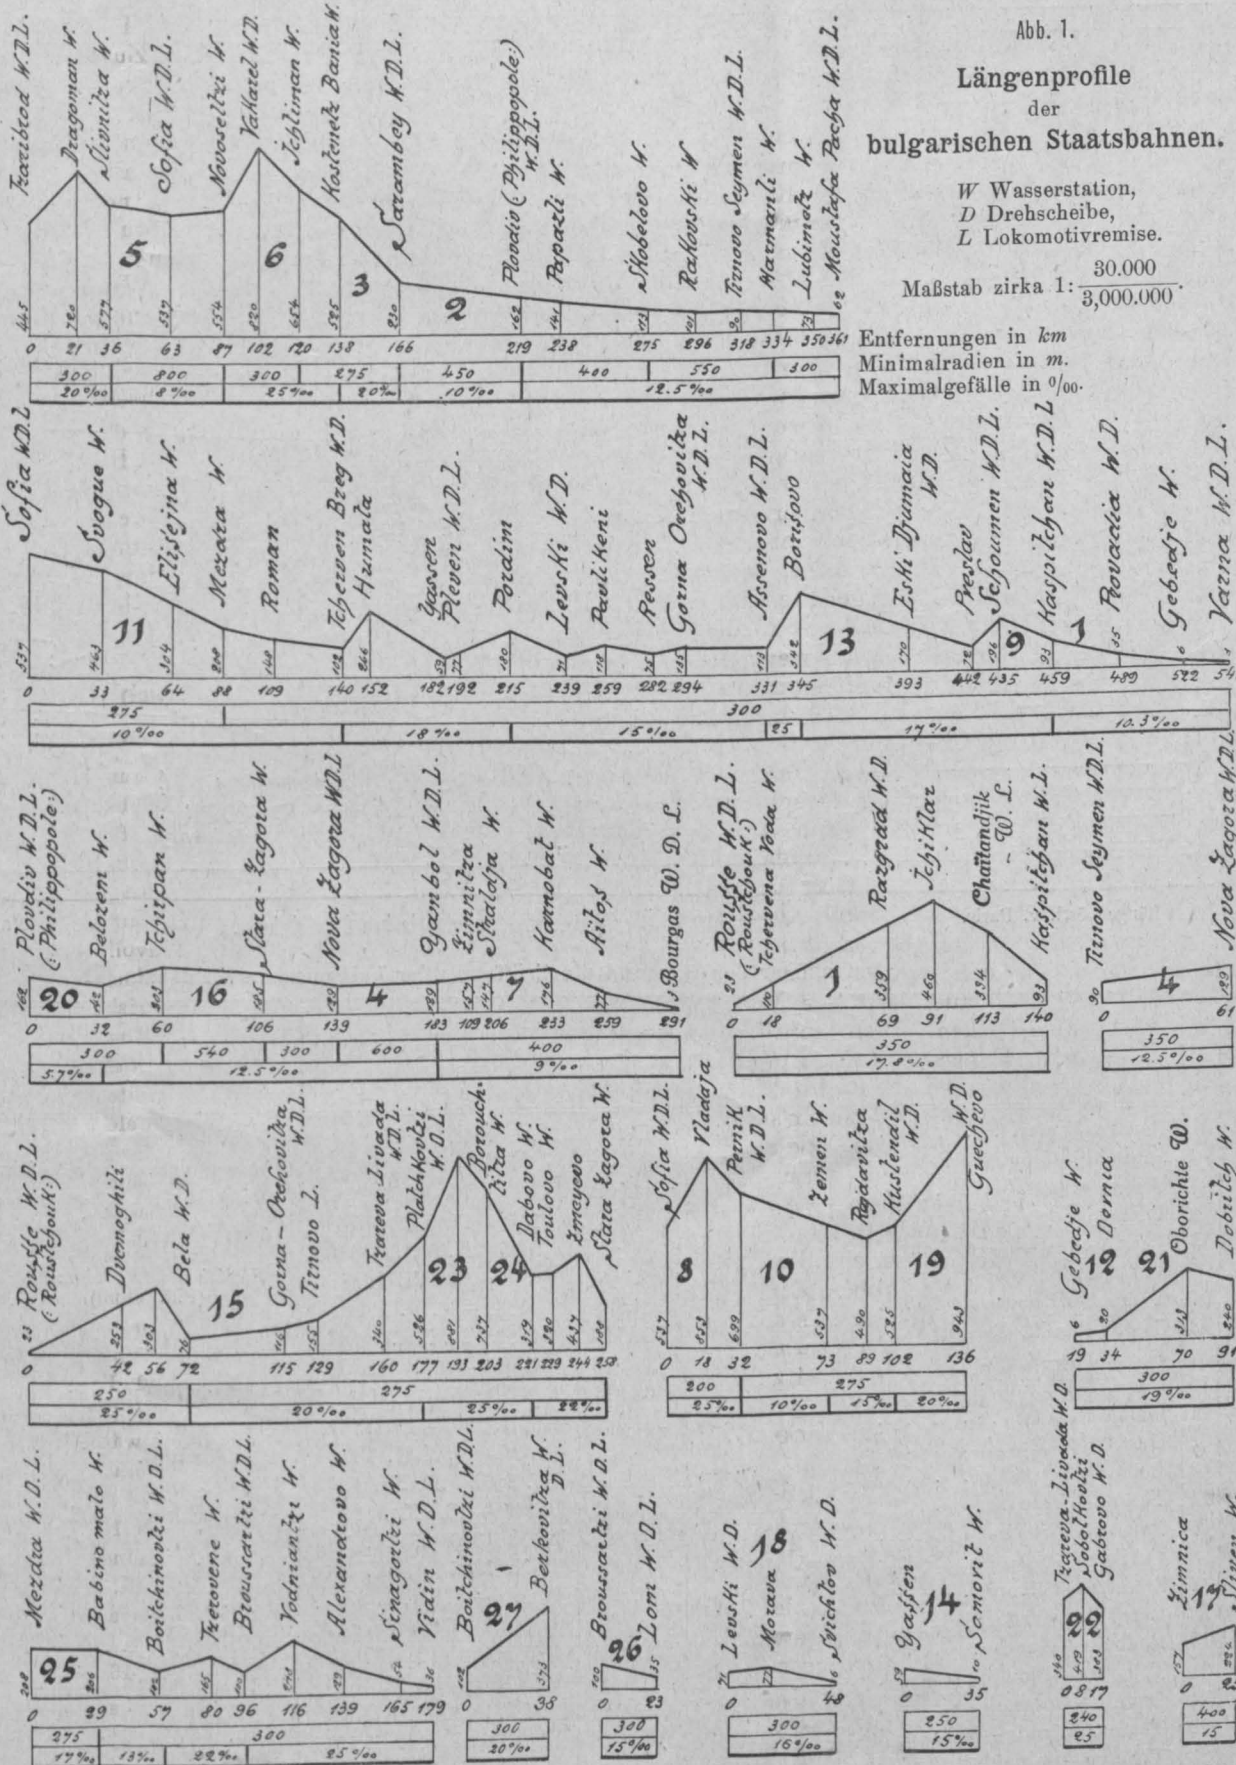 Abb. 1.
Längenprofile
der
bulgarischen Staatsbahnen.
W Wasserstation,
D Drehscheibe,
L Lokomotivremise.
Maßstab zirka 1: 30.000
3,000.000.
Entfernungen in km
Minimalradien in m.
Maximalgefälle in ⁰/₀₀.
Dragoman W.
Slivnitza W.
Sofia W.D.L.
Novoseltzi W.
Vakarel W.D.
Ichtiman W.
Kostenetz Bania W.
Sarambey W.D.L.
Plovdiv (Philippopole:)
W.D.L.
Papazli W.
Skobelovo W.
Rakovski W
Tirnovo Seymen W.D.L.
Harmanli W.
Lubimetz W.
Moustafa Pacha W.D.L.
5 6 3 2
445 720 577 537 554 820 654 525 230 162 141 113 101 90 73 62
0 21 36 63 87 102 120 138 166 219 238 275 296 318 334 350 361
300 800 300 275 450 400 550 300
20⁰/₀₀ 8⁰/₀₀ 25⁰/₀₀ 20⁰/₀₀ 10⁰/₀₀ 12.5⁰/₀₀
Sofia W.D.L
Svogue W.
Elisejna W.
Mezdra W.
Roman
Tcherven Breg W.D.
Yassen
Pleven W.D.L.
Pordim
Levski W.D.
Pavlikeni
Ressen
Gorna Orehovitza
W.D.L.
Assenovo W.D.L.
Borisovo
Eski Djumaia
W.D.
Preslav
Schoumen W.D.L.
Kaspitchan W.D.L
Provadia W.D.
Gebedje W.
Varna W.D.L.
11 13 9 1
537 463 304 208 148 266 180 118 342 170 93 35 6
0 33 64 88 109 140 152 182 192 215 239 259 282 294 331 345 393 442 435 459 489 522 54
275 300
10⁰/₀₀ 18⁰/₀₀ 15⁰/₀₀ 25 17⁰/₀₀ 10.3⁰/₀₀
Plovdiv W.D.L.
(:Philippopole:)
Belozem W.
Tchirpan W.
Stara-Zagora W.
Nova Zagora W.D.L
Yambol W.D.L.
Zimnitza
Straldja W.
Karnobat W.
Aitos W.
Bourgas W.D.L.
20 16 4 7
0 32 60 106 139 183 109 206 233 259 291
300 540 300 600 400
5.7⁰/₀₀ 12.5⁰/₀₀ 9⁰/₀₀
Rousse W.D.L.
(Roustchouk:)
Tchervena Voda W.
Razgrad W.D.
Ichiklar
Chaïtandjik
W.L.
Kaspitchan W.L.
1
23 359 460 334 93
0 18 69 91 113 140
350
17.8⁰/₀₀
Tirnovo Seymen W.D.L.
Nova Zagora W.D.L.
4
90
0 61
350
12.5⁰/₀₀
Rousse W.D.L.
(:Roustchouk:)
Dvemoghili
Bela W.D.
Gorna-Orehovitza
W.D.L.
Tirnovo L.
Tzareva Livada
W.D.L.
Platchkovtzi
W.D.L.
Borouch-
titza W.
Dabovo W.
Toulovo W.
Zmeyevo
Stara Zagora W.
15 23 24
23 253 303 76 155 340 526 737 437
0 42 56 72 115 129 160 177 193 203 221 229 244 258
250 275
25⁰/₀₀ 20⁰/₀₀ 25⁰/₀₀ 22⁰/₀₀
Sofia W.D.L.
Vladaja
Pernik
W.D.L.
Zemen W.
Kustendil
W.D.
W.D.
Guechevo
8 10 19
537 853 699 537 490 525 943
0 18 32 73 89 102 136
200 275
25⁰/₀₀ 10⁰/₀₀ 15⁰/₀₀ 20⁰/₀₀
Gebedje W.
Dernia
Oborichte W.
Dobritch W.
12 21
6 20 313 240
19 34 70 91
300
19⁰/₀₀
Mezdra W.D.L.
Babino malo W.
Boitchinovtzi W.D.L.
Tzerovene W.
Broussartzi W.D.L
Vodniantzi W.
Alexandrovo W.
Sinagovtzi W.
Vidin W.D.L.
25
0 29 57 80 96 116 139 165 179
275 300
17⁰/₀₀ 13⁰/₀₀ 22⁰/₀₀ 25⁰/₀₀
Boitchinovtzi W.D.L
Berkovitza W.
D.L.
27
102 373
0 38
300
20⁰/₀₀
Broussartzi W.D.L.
Lom W.D.L.
26
100 35
0 23
300
15⁰/₀₀
Levski W.D.
Morava
Svichtov W.D.
18
0 48
300
16⁰/₀₀
Yassen
Somovit W.
14
0 35
250
15⁰/₀₀
Tzareva-Livada W.D.
Sokolkovtzi
Gabrovo W.D.
22
0 8 17
240
25
Zimnica
Sliven W.
17
157
0
400
15